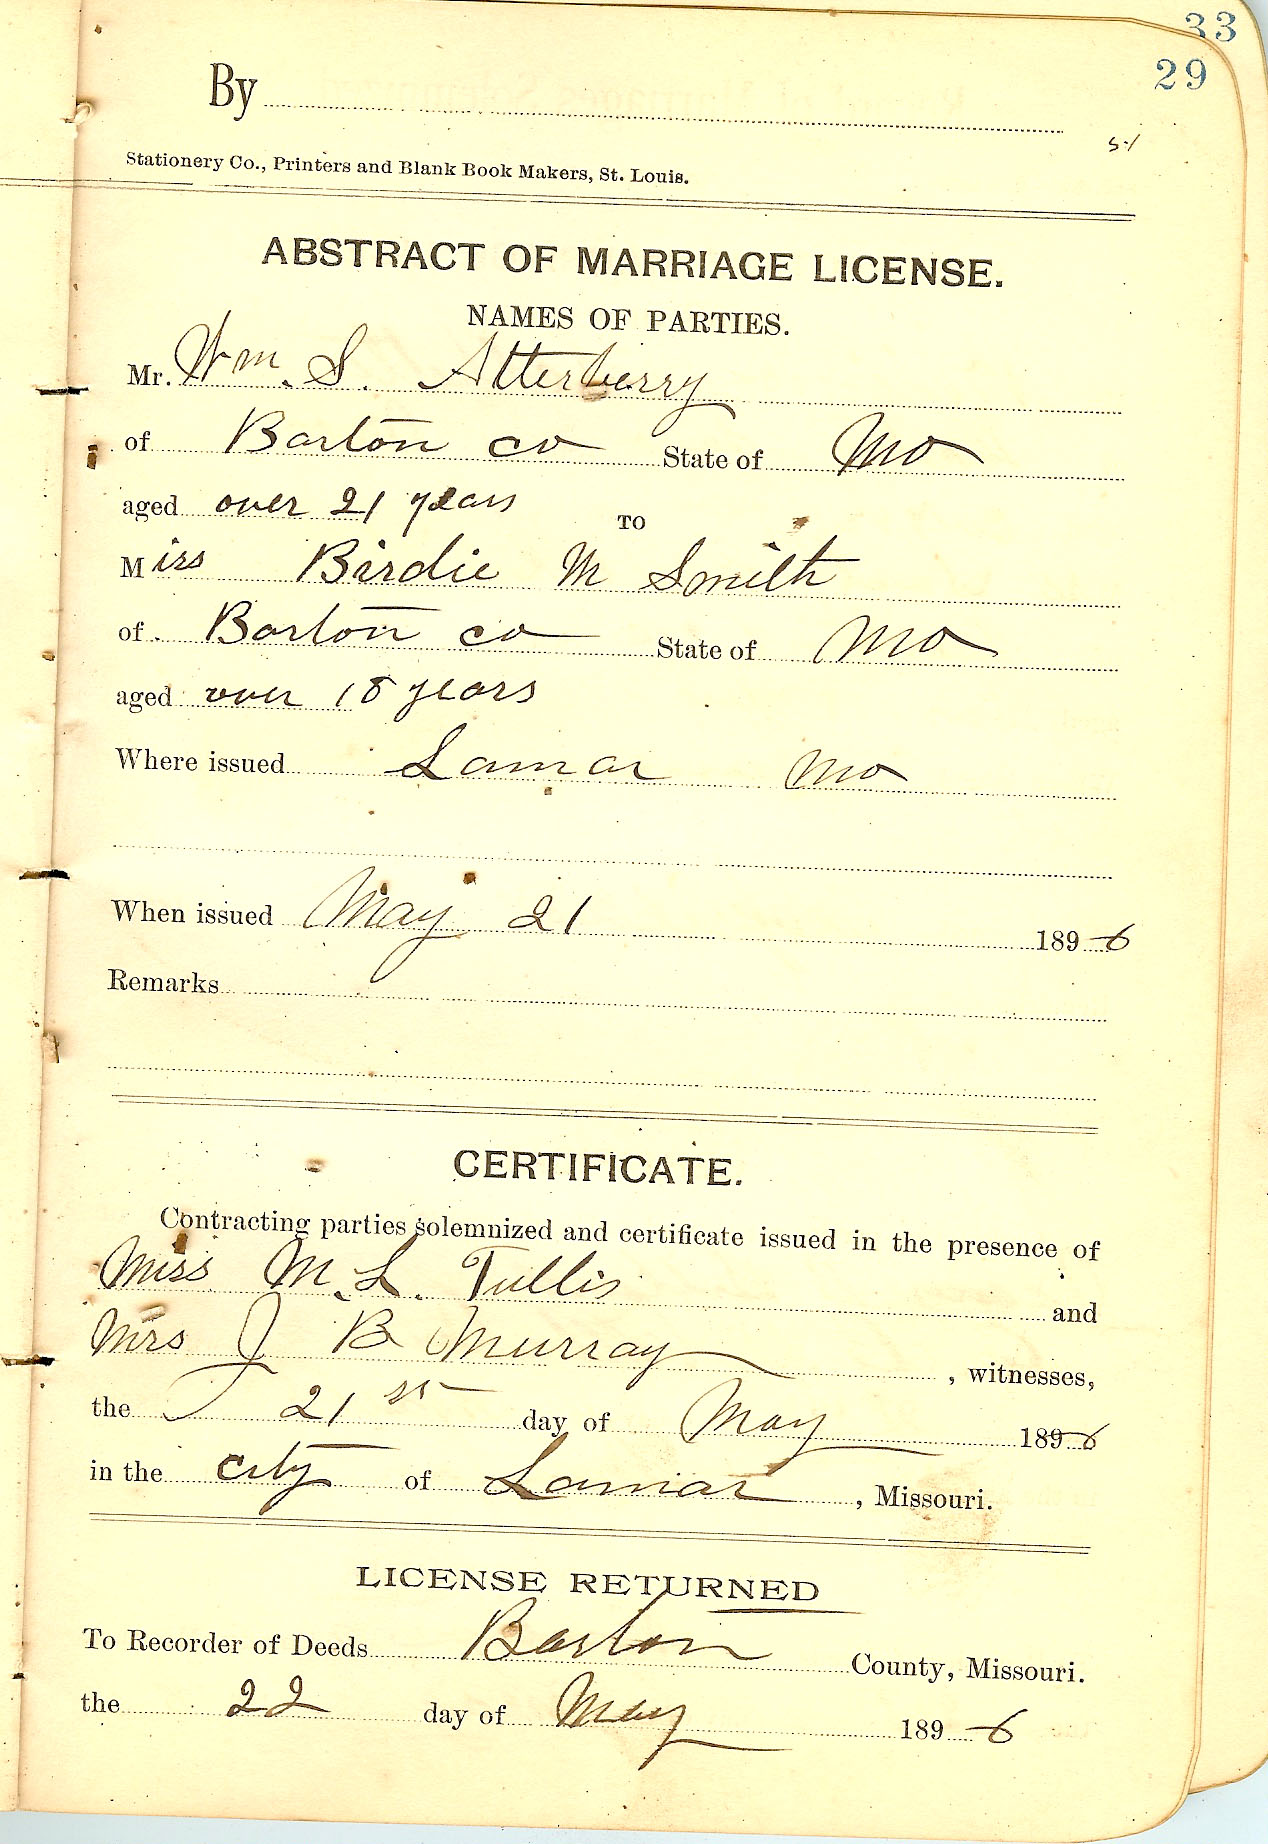 33
29
By
51
Stationery Co., Printers and Blank Book Makers, St. Louis.
ABSTRACT OF MARRIAGE LICENSE.
NAMES OF PARTIES.
Mr. Wm. S. Atterberry
of Barton co State of Mo
aged over 21 years
TO
Miss Birdie M Smith
of Barton co State of Mo
aged over 18 years
Where issued Lamar Mo
When issued May 21 1896
Remarks
CERTIFICATE.
Contracting parties solemnized and certificate issued in the presence of
Miss M. L. Tullis and
Mrs J B Murray , witnesses,
the 21st day of May 1896
in the city of Lamar , Missouri.
LICENSE RETURNED
To Recorder of Deeds Barton County, Missouri.
the 22 day of May 1896